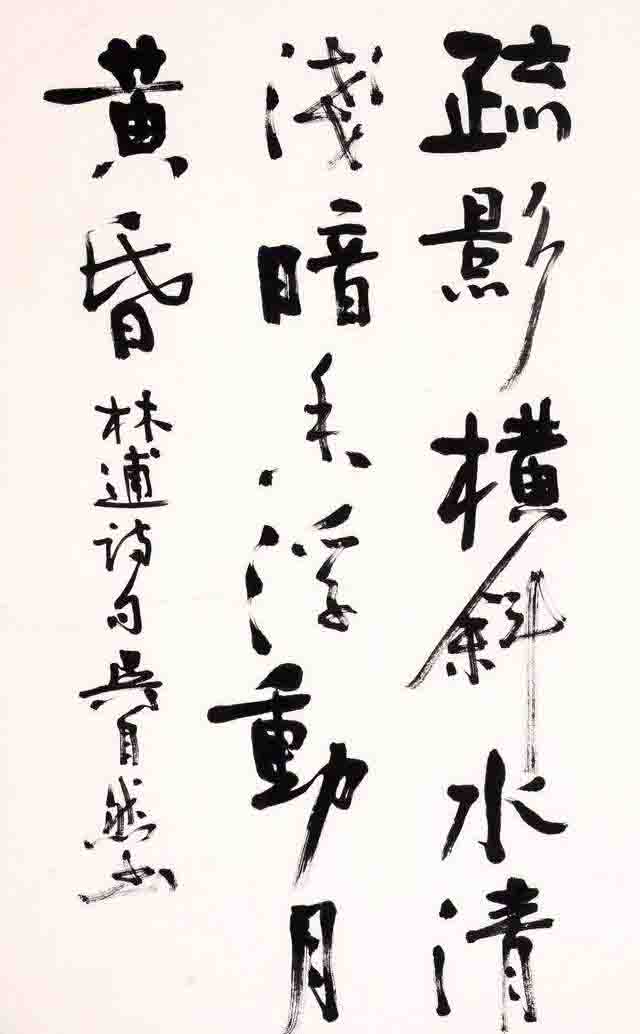 疏影橫斜水清
淺暗香浮動月
黄昏
林逋诗句吴自然书